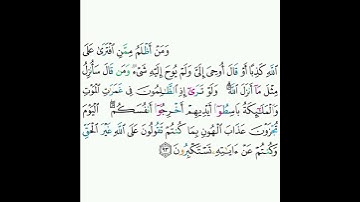 وَمَنْ أَظْلَمُ مِمَّنِ ٱفْتَرَىٰ عَلَى
ٱللَّهِ كَذِبًا أَوْ قَالَ أُوحِىَ إِلَىَّ وَلَمْ يُوحَ إِلَيْهِ شَىْءٌ وَمَن قَالَ سَأُنزِلُ
مِثْلَ مَآ أَنزَلَ ٱللَّهُ ۗ وَلَوْ تَرَىٰٓ إِذِ ٱلظَّٰلِمُونَ فِى غَمَرَٰتِ ٱلْمَوْتِ
وَٱلْمَلَٰٓئِكَةُ بَاسِطُوٓا۟ أَيْدِيهِمْ أَخْرِجُوٓا۟ أَنفُسَكُمُ ۖ ٱلْيَوْمَ
تُجْزَوْنَ عَذَابَ ٱلْهُونِ بِمَا كُنتُمْ تَقُولُونَ عَلَى ٱللَّهِ غَيْرَ ٱلْحَقِّ
وَكُنتُمْ عَنْ ءَايَٰتِهِۦ تَسْتَكْبِرُونَ ٩٣